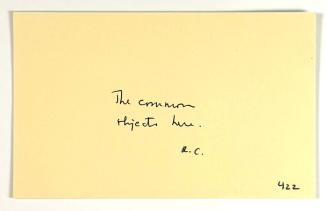 The common
objects here.
R.C.
422